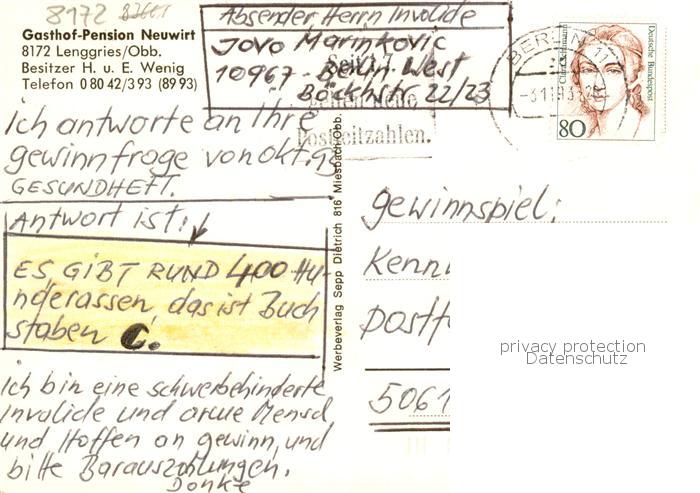 8172
Gasthof-Pension Neuwirt
8172 Lenggries/Obb.
Besitzer H. u. E. Wenig
Telefon 0 80 42/3 93 (89 93)
Absender, Herrn Involide
Jovo Marinkovic
10967 - Berlin West
Böckhstr 22/23
Seit 1.7.
Postleitzahlen.
BERLIN 11
-3.11.93-
80
Deutsche Bundespost
ich antworte an Ihre
gewinnfrage von okt. 93
GESUNDHEFT.
Antwort ist:
ES, GiBT RUND 400 Hu-
nderassen, das ist Buch
staben C.
Ich bin eine schwerbehinderte
Involide und arme Mensch
und Hoffen an gewinn, und
bitte Barauszahlungen.
Donke
Werbeverlag Sepp Dietrich 816 Miesbach/Obb.
gewinnspiel:
Kenn
postf
5061
privacy protection
Datenschutz